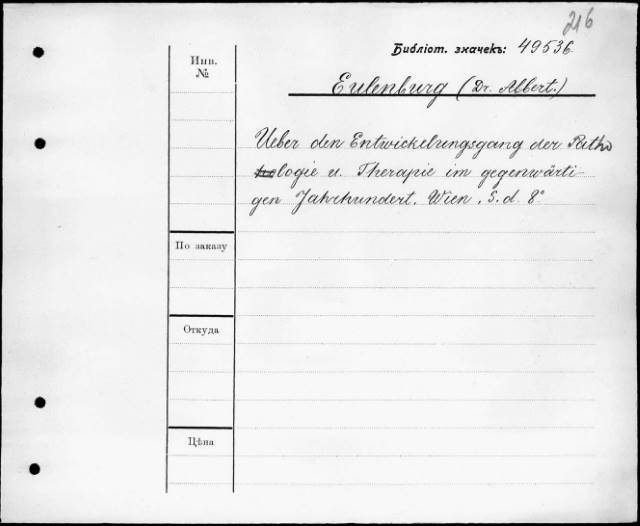 216
Библіот. значекъ: 49536
Инв.
№
Eulenburg (Dr. Albert.)
Ueber den Entwickelungsgang der Patho
logie u. Therapie im gegenwärti-
gen Jahrhundert. Wien, s. d. 8°
По заказу
Откуда
Цѣна